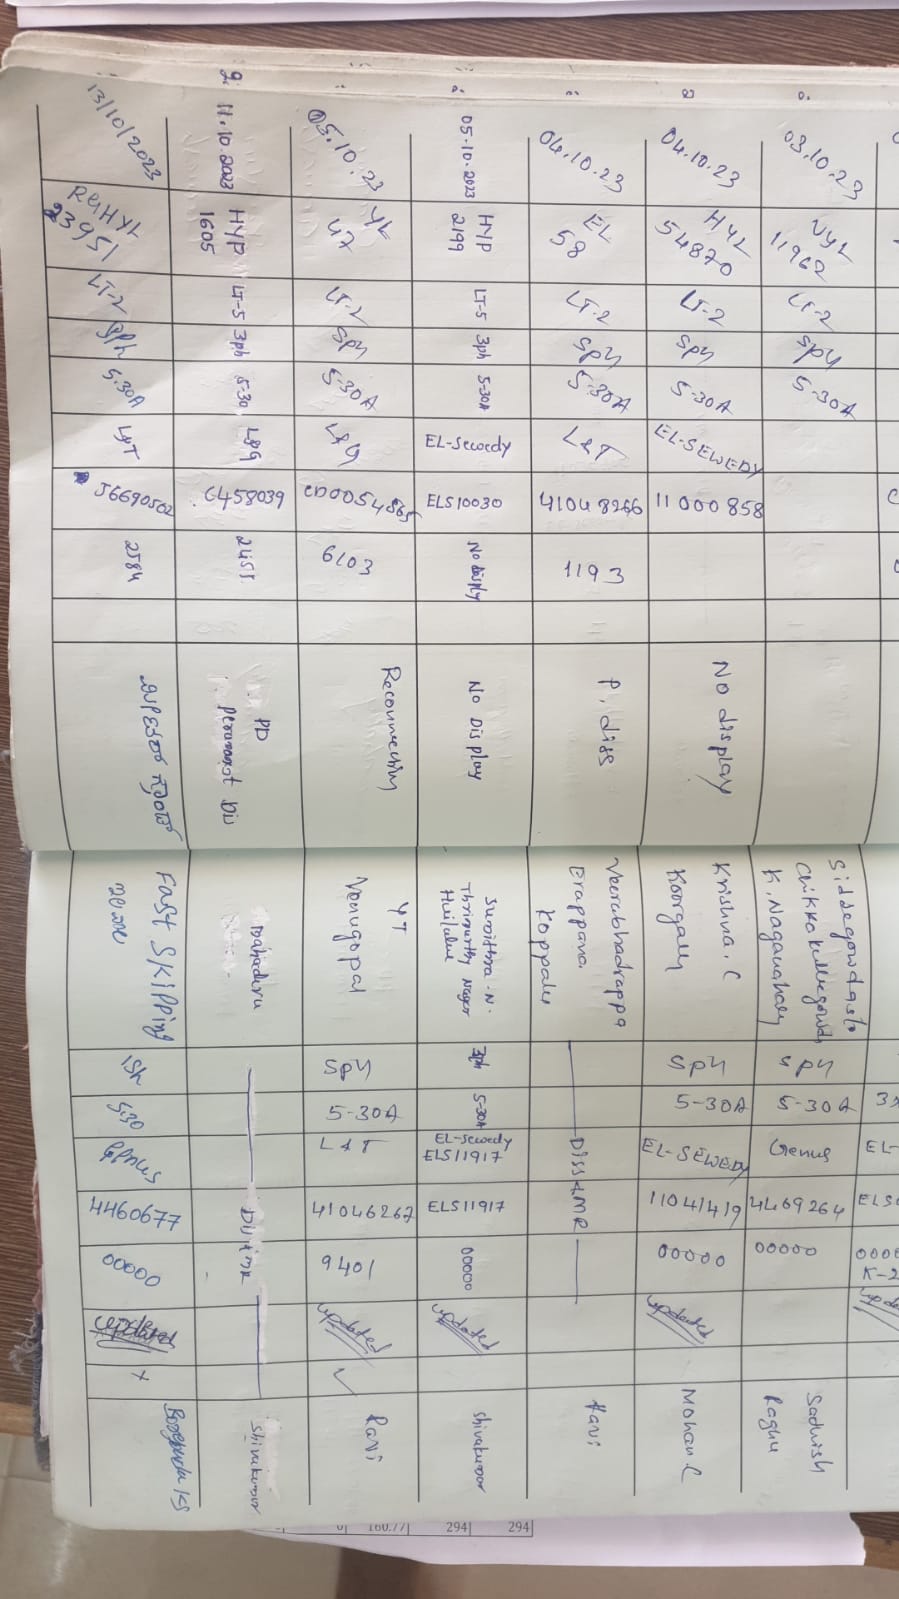 03.10.23
11962
LT-2
SPH
5-30A
Siddegowda s/o
K. Naganahally
SPH
5-30A
Genus
4469264
00000
Raghu
04.10.23
HYL
54870
LT-2
SPH
5-30A
EL-SEWEDY
11000858
No display
Krishna. C
Koorgally
SPH
5-30A
EL-SEWEDY
11041419
00000
updated
Mohan C
04.10.23
EL
58
LT-2
SPH
5-30A
L&T
41048266
1193
P. diss
Veerabhadrappa
Erappana
Koppalu
Diss & MR
Ravi
05.10.2023
HYP
2199
LT-5
3ph
5-30A
EL-Sewedy
ELS10030
No display
No Display
Sumithra. N.
Thrimurthy Nagar
3ph
5-30A
EL-Sewedy
ELS11917
ELS11917
00000
updated
Shivakumar
05.10.23
YL
47
LT-2
SPH
5-30A
6103
YT
Venugopal
SPH
5-30A
L&T
41046267
9401
updated
✓
Ravi
11.10.2023
HYP
1605
LT-5
3ph
5-30
C458039
PD
Mahadevu
Shivakumar
13/10/2023
LT-2
5-30A
L&T
2584
Fast Skipping
5-30
4460677
00000
updated